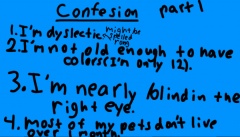 Confesion part 1
1. I'm dyslectic might be spelled rong
2. I'm not old enough to have
colors (I'm only 12).
3. I'm nearly blind in the
right eye.
4. most of my pets don't live
over 1 month.